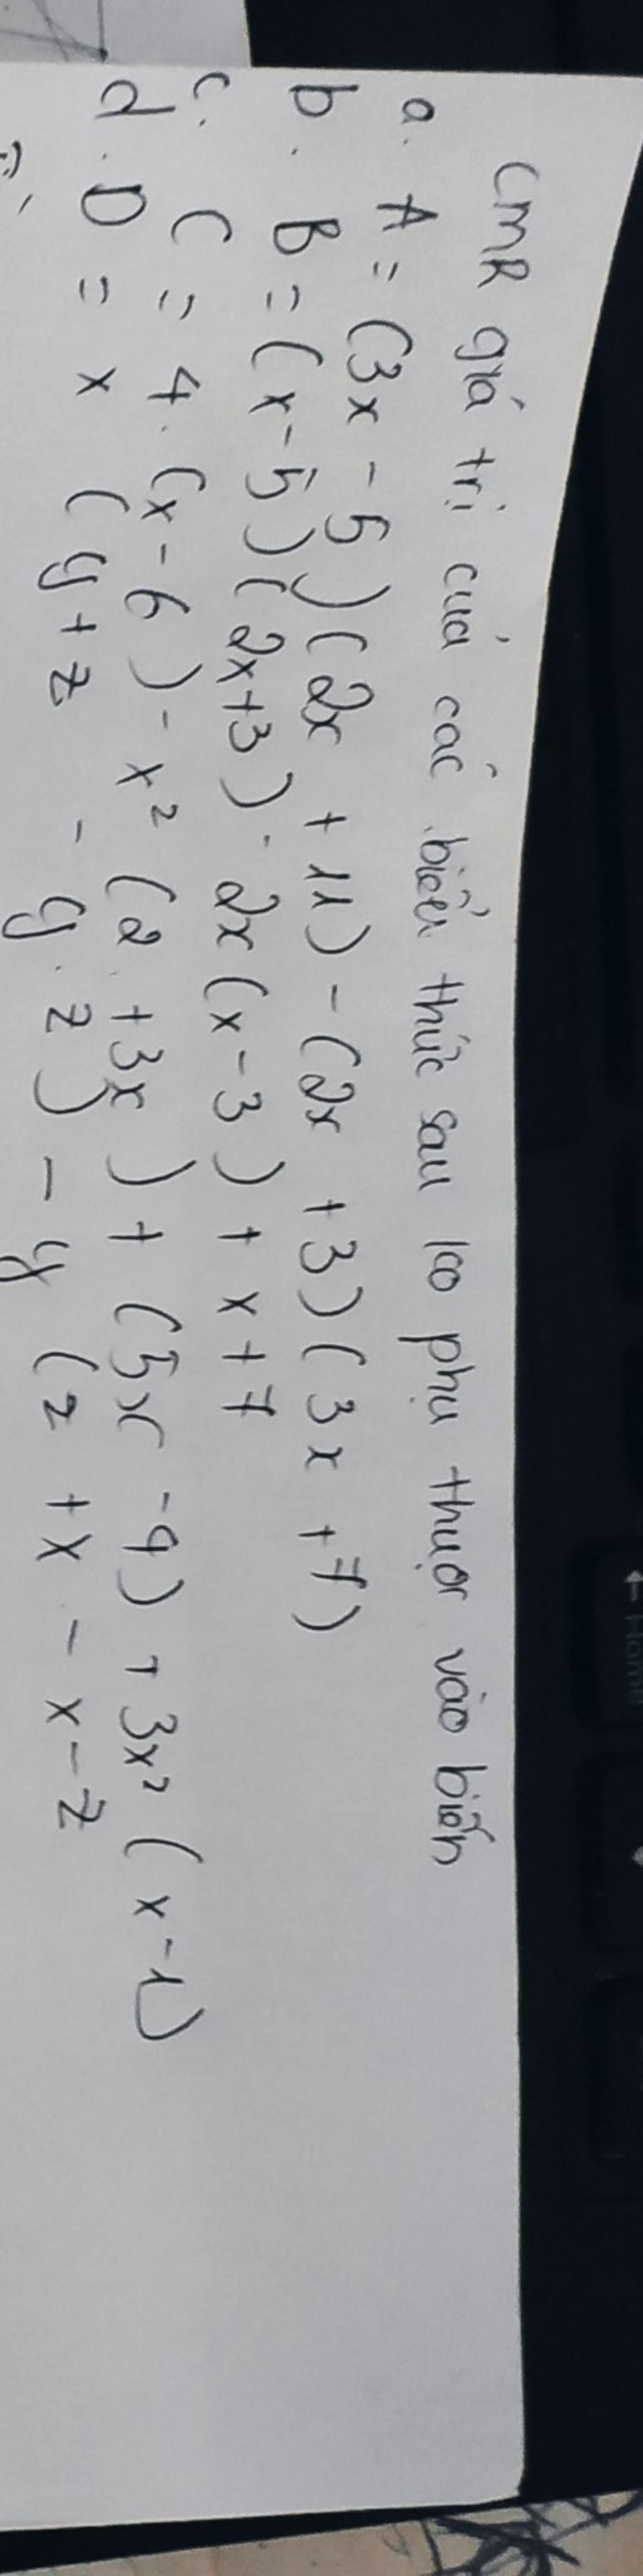 CMR giá trị của các biểu thức sau ko phụ thuộc vào biến
a. A = (3x - 5)(2x + 11) - (2x + 3)(3x + 7)
b. B = (x - 5)(2x + 3) - 2x(x - 3) + x + 7
c. C = 4.(x - 6) - x² (2 + 3x) + (5x - 9) + 3x² (x - 1)
d. D = x (y + z - y.z) - y (z + x - x - z
← Home